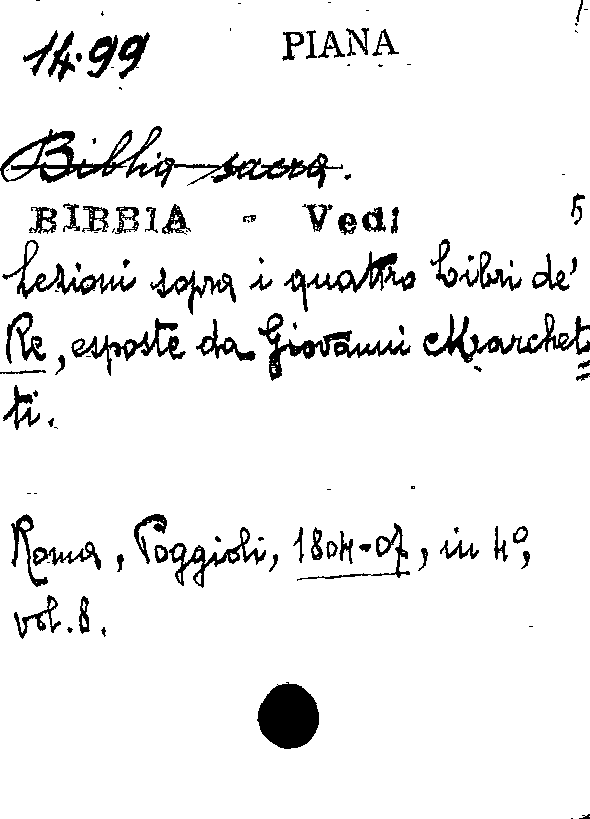 14.99 PIANA
Biblia sacra.
BIBBIA - Vedi 5
Lezioni sopra i quattro Libri de'
Re, esposte da Giovanni Marchet=
ti.
Roma, Poggioli, 1804-07, in 4º,
vol. 8.